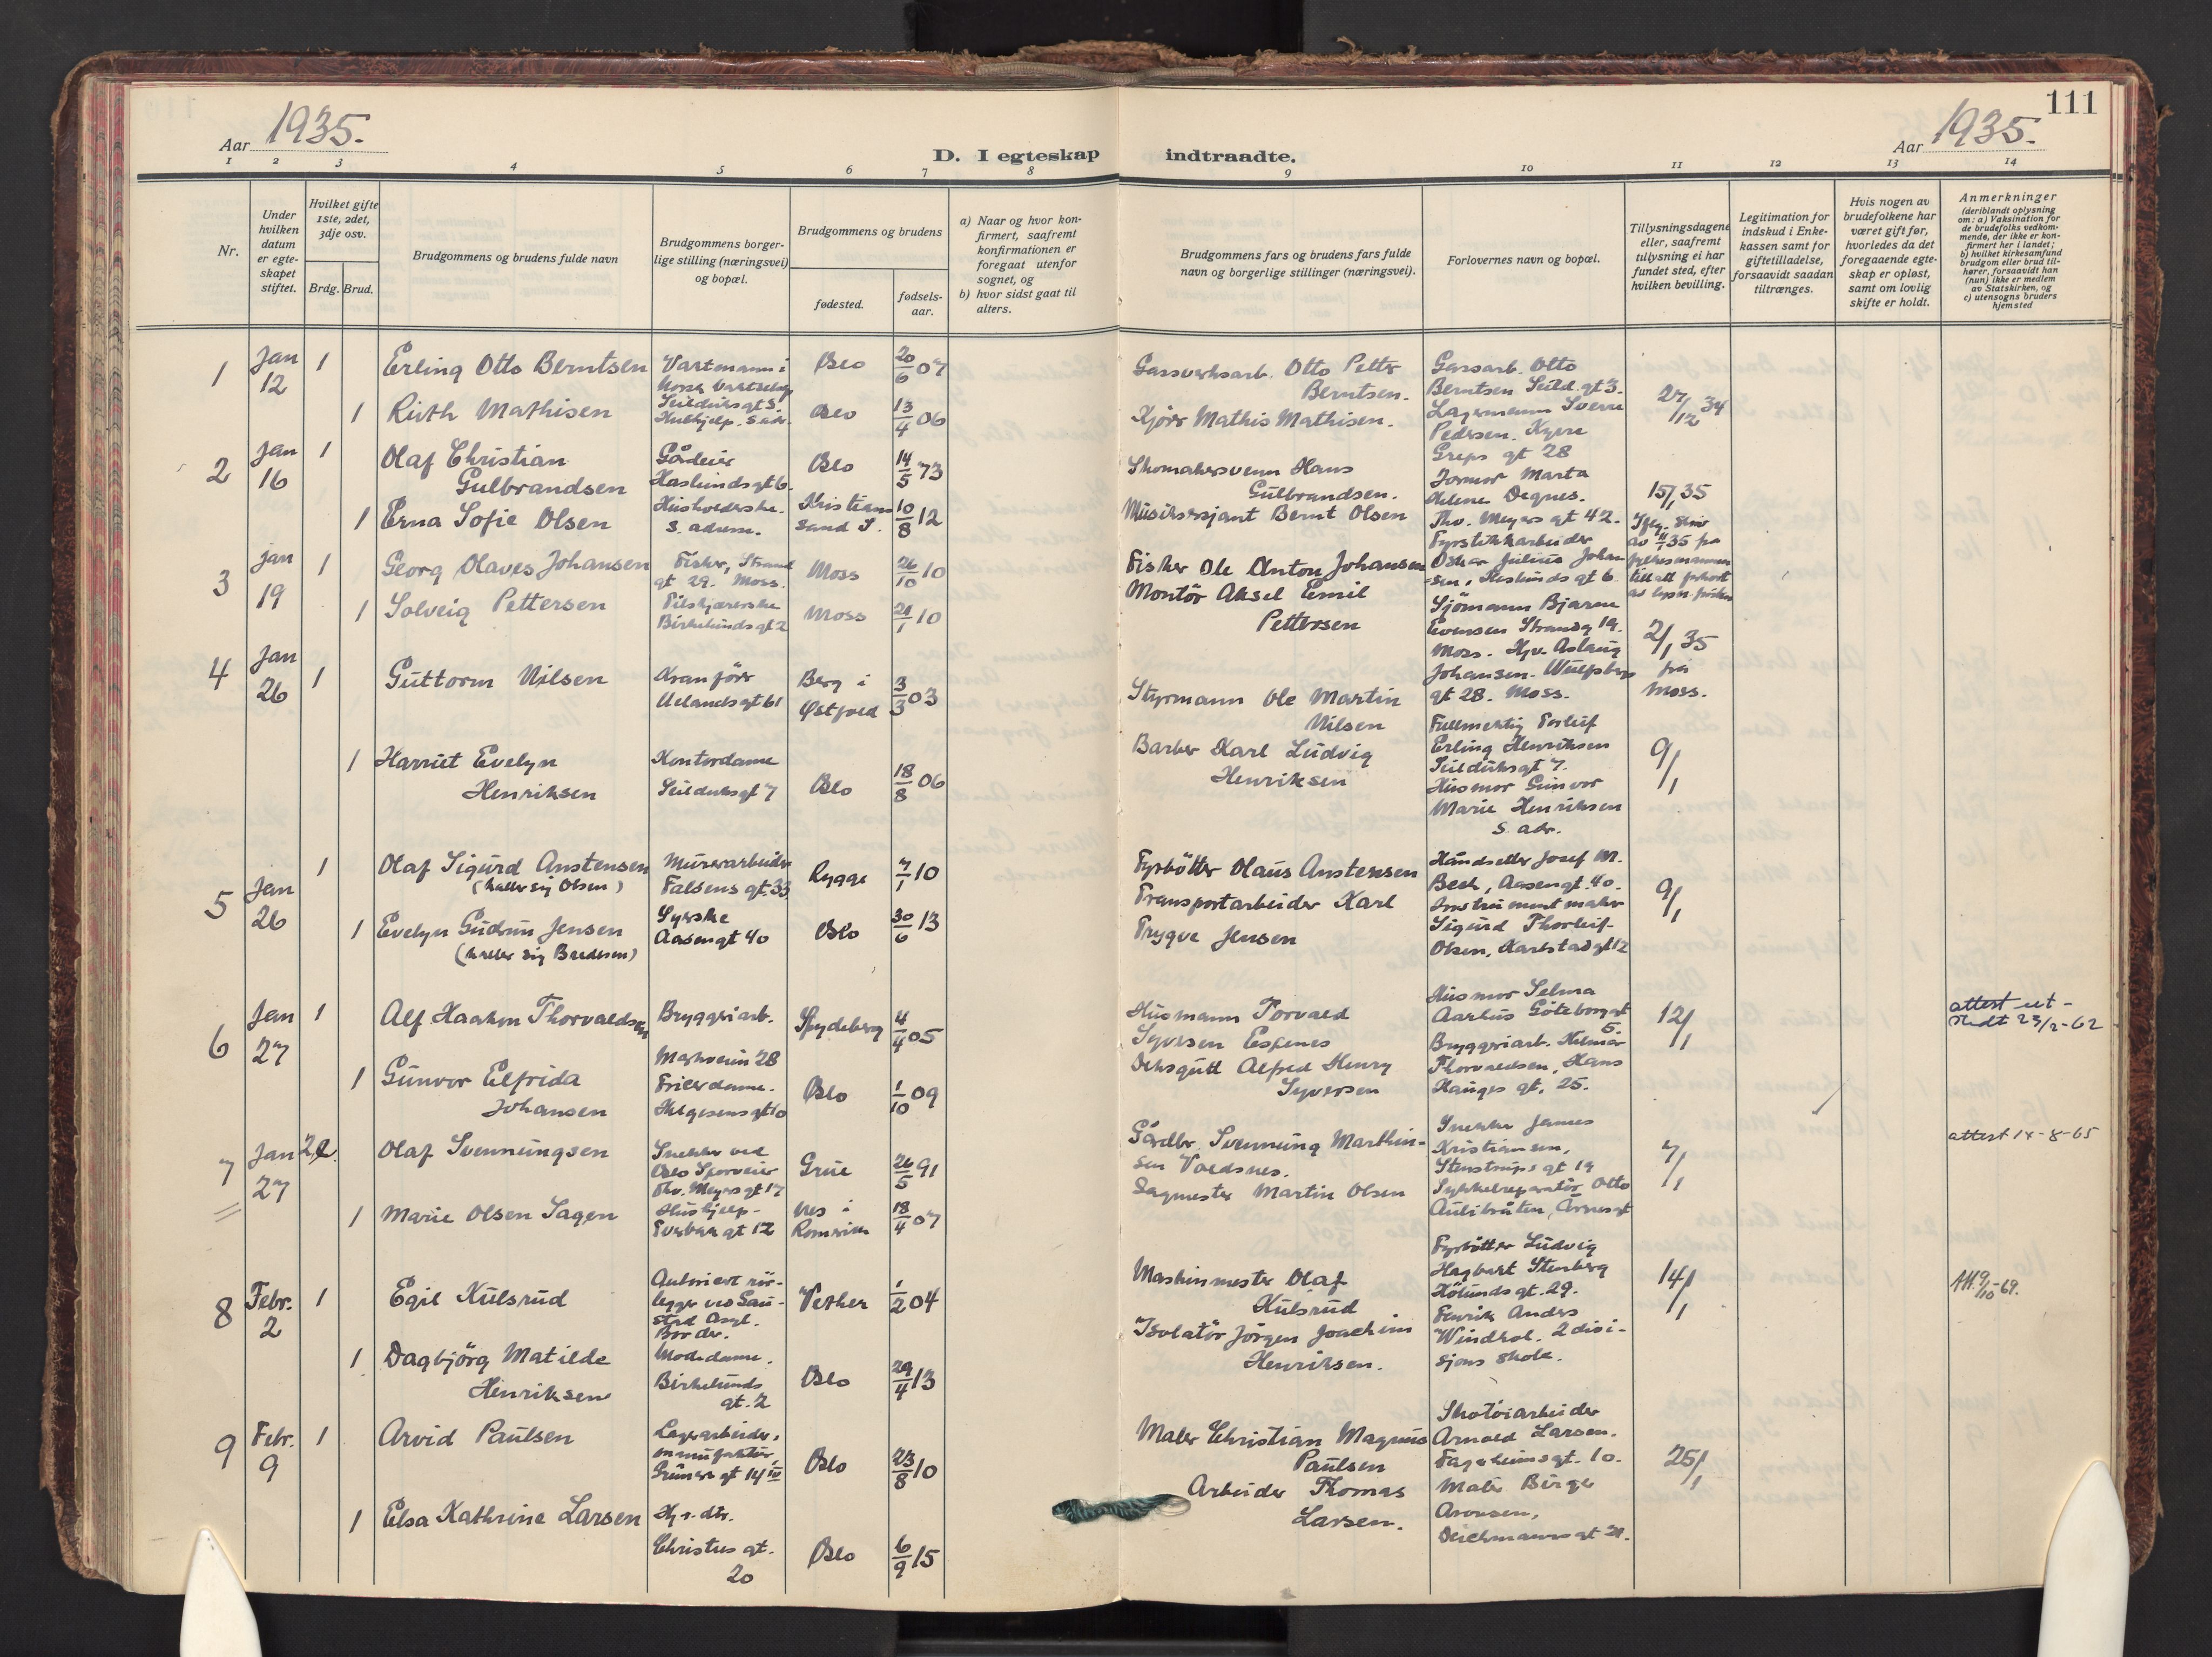 111
Aar 1935.
Aar 1935.
D. I egteskap indtraadte.
1 2 3 4 5 6 7 8 9 10 11 12 13 14
Nr.
Under hvilken datum er egte-skapet stiftet.
Hvilket gifte 1ste, 2det, 3dje osv.
Brdg. Brud.
Brudgommens og brudens fulde navn
Brudgommens borger-lige stilling (næringsvei) og bopæl.
Brudgommens og brudens
fødested.
fødsels-aar.
a) Naar og hvor kon-firmert, saafremt konfirmationen er foregaat utenfor sognet, og
b) hvor sidst gaat til alters.
Brudgommens fars og brudens fars fulde navn og borgerlige stillinger (næringsvei).
Forlovernes navn og bopæl.
Tillysningsdagene eller, saafremt tillysning ei har fundet sted, efter hvilken bevilling.
Legitimation for indskud i Enke-kassen samt for giftetilladelse, forsaavidt saadan tiltrænges.
Hvis nogen av brudefolkene har været gift før, hvorledes da det foregaaende egte-skap er opløst, samt om lovlig skifte er holdt.
Anmerkninger
(deriblandt oplysning om: a) Vaksination for de brudefolks vedkom-mende, der ikke er kon-firmert her i landet; b) hvilket kirkesamfund brudgom eller brud til-hører, forsaavidt han (hun) ikke er medlem av Statskirken, og c) utensogns bruders hjemsted
1 Jan 12
1 Erling Otto Berntsen
Vaktmann i Norsk Vaktselsk. Seilduksgt 3
Oslo 20/6 07
Gassverksarb. Otto Petter Berntsen.
Gassarb. Otto Berntsen Seild.gt 3.
27/12 34
1 Ruth Mathisen
Hushjelp. S. adr.
Oslo 13/4 06
Kjörer Mathis Mathisen.
Lagermann Sverre Pedersen. Kyrre Greps gt 28
2 Jan 16
1 Olaf Christian Gulbrandsen
Gårdeier Haslundsgt 6.
Oslo 14/5 73
Skomakersvenn Hans Gulbrandsen.
Jormor Marta Helene Degnes. Thv. Meyers gt 42.
15/1 35
1 Erna Sofie Olsen
Husholderske. S. adresse.
Kristiansand S. 10/8 12
Musikersjant Bernt Olsen
Fyrstikkarbeider Oskar Julius Johansen, Haslunds gt 6
3 Jan 19
1 Georg Olaves Johansen
Fisker, Strand gt 29. Moss.
Moss 26/10 10
Fisker Ole Anton Johansen
Sjömann Bjarne Evensen Strandg 19. Moss.
2/1 35 fra Moss.
1 Solveig Pettersen
Birkelunds gt 2
Moss 21/1 10
Montör Aksel Emil Pettersen
Hjv. Aslaug Johansen. Wulfsberg gt 28. Moss.
4 Jan 26
1 Guttorm Nilsen
Kranförer Uelands gt 61
Berg i Østfold 3/3 03
Styrmann Ole Martin Nilsen
Fullmektig Torleif Erling Henriksen Seilduksgt 7.
9/1
1 Harriet Evelyn Henriksen
Kontordame Seilduksgt 7
Oslo 18/8 06
Barber Karl Ludvig Henriksen
Husmor Gunvor Marie Henriksen s. adr.
5 Jan 26
1 Olaf Sigurd Anstensen (kaller sig Olsen)
Murerarbeider Falsens gt. 33
Rygge 7/1 10
Fyrbötter Olaus Anstensen
Håndsetter Josef M. Bech, Aasengt. 40.
9/1
1 Evelyn Gudrun Jensen (kaller sig Bredesen)
Syerske Aasengt 40
Oslo 30/6 13
Transportarbeider Karl Trygve Jensen
Instrumentmaker Sigurd Thorleif Olsen, Karlstadgt 12
6 Jan 27
1 Alf Haakon Thorvaldsen
Bryggeriarb. Markveien 28
Spydeberg 4/4 05
Husmann Torvald Syversen Espenes
Husmor Selma Aarhus Göteborggt 5.
12/1
attest ut-stedt 23/2-62
1 Gunvor Elfrida Johansen
Helgesens gt 10
Oslo 1/10 09
Alfred Henry Syversen
Bryggeriarb. Hilmar Thorvaldsen, Hans Hauges gt. 25.
7 Jan 27
2 Olaf Svennungsen
Snekker ved Oslo Sporveier Thv. Meyers gt 17
Grue 26/5 91
Gårdbr. Svennung Marthinsen Voldsnes.
Snekker James Kristiansen, Stenstrups gt 19
7/1
attest 14-8-65
1 Marie Olsen Sagen
Hushjelp
Nes i Romerike 18/4 07
Sagmester Martin Olsen
Sykkelreparatör Otto Aulibråten,
8 Febr. 2
1 Egil Kulsrud
Autorisert rör-legger ved Gau-stad Asyl. Bor der.
Vestker 1/2 04
Maskinmester Olaf Kulsrud
Fyrbötter Ludvig Hagbart Stenberg Kölunds gt. 29.
14/1
Att 9/10-69.
1 Dagbjörg Matilde Henriksen
Modedame. Birkelunds gt. 2
Oslo 29/4 13
Isolatör Jörgen Joachim Henriksen.
Fenrik Anders Windhol. 2 divi-sjons skole.
9 Febr. 9
1 Arvid Paulsen
Lagerarbeider, manufaktur, Grüners gt 14 III
Oslo 23/8 10
Maler Christian Magnus Paulsen
Skotöiarbeider Arnold Larsen. Fagerheimsgt. 10.
25/1
1 Elsa Kathrine Larsen
Hj.v. dtr. Christies gt. 20
Oslo 6/9 15
Arbeider Thomas Larsen.
Maler Birger Aronsen, Deichmanns gt 21.